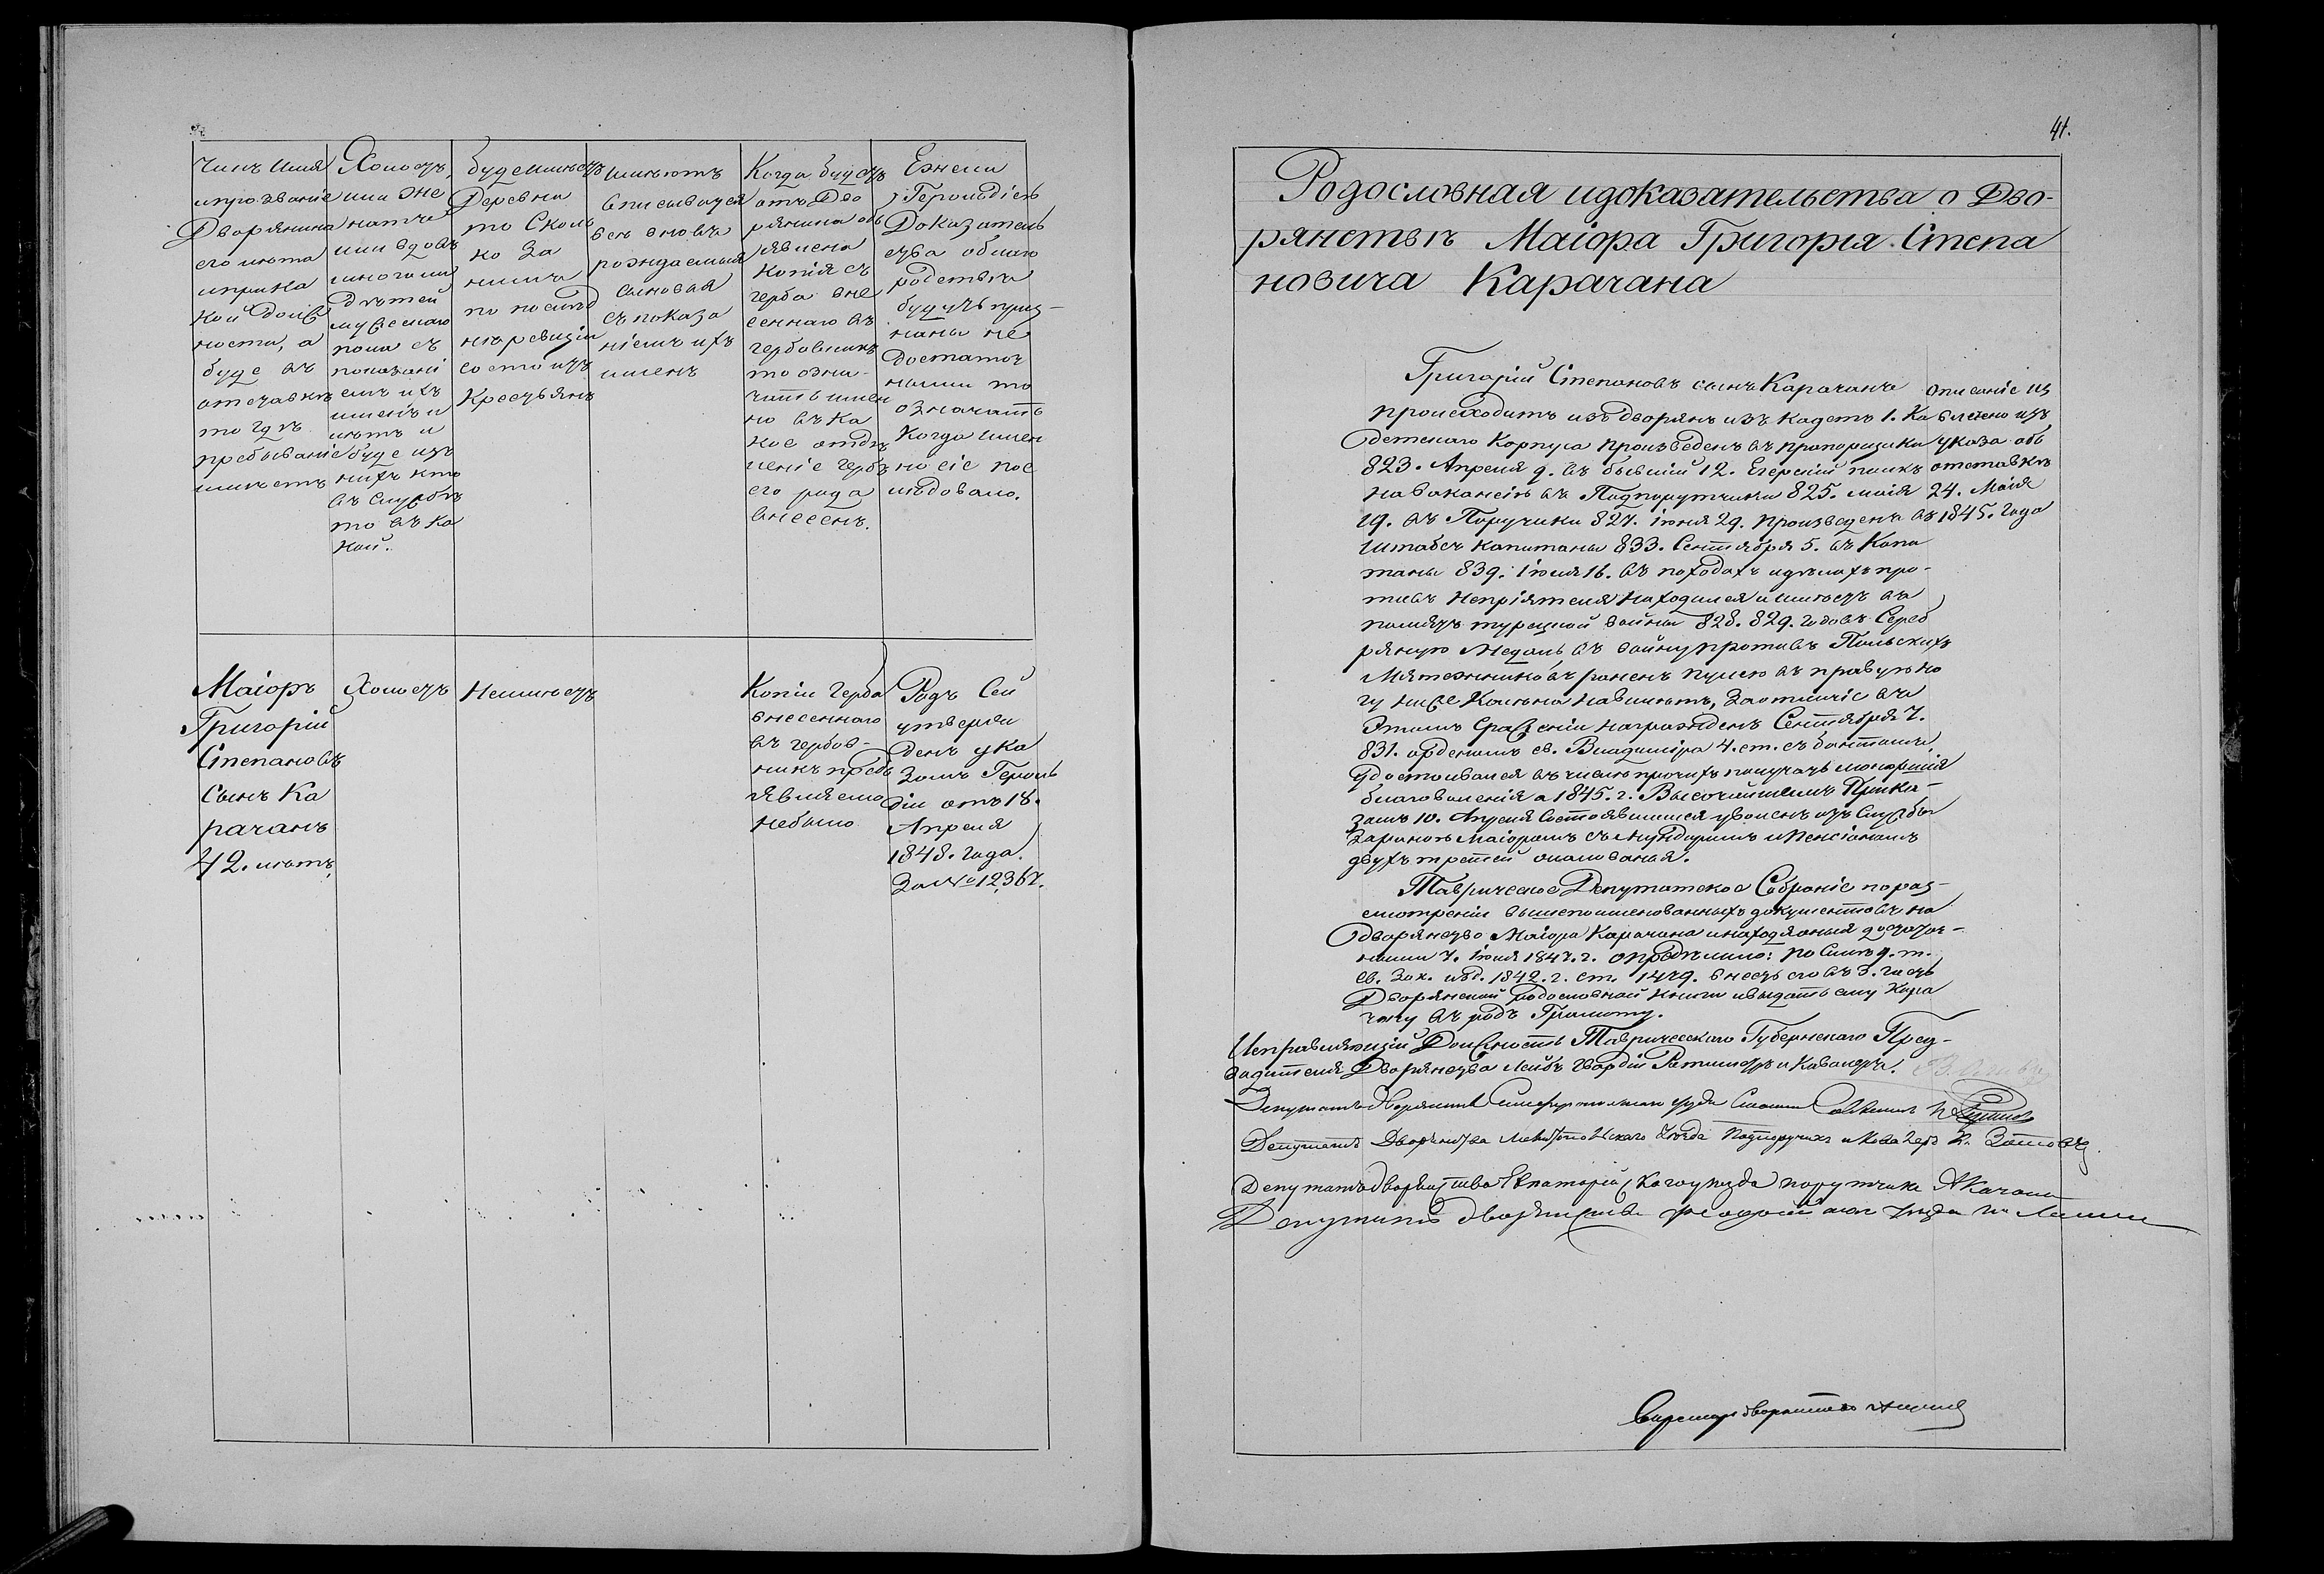 Чинъ Имя
ипрозваніе
Дворянина
его лѣта
иприка
кой долж
ности, а
буде въ
отставкѣ
то гдѣ
пребываніе
имѣетъ
Холостъ,
или же
натъ
или вдовъ
многоли
дѣтей
мужескаго
пола съ
показані
емъ ихъ
именъ и
лѣтъ и
буде изъ
нихъ кто
въ службѣ
то въ ка
кой.
буде имѣетъ
Деревни
то Сколь
ко За
нимъ
по послѣд
ней ревизіи
состоитъ
Крестьянъ
имѣютъ
вписыватся
всѣ вновь
рождаемыя
сыновья
съ показа
ніемъ ихъ
именъ
Когда будетъ
отъ Дво
рянина объ
явлена
копія съ
герба вне
сеннаго въ
гербовникъ
то озна-
чить имен
но въ Ка
кое отдѣ
леніе гербъ
его рода
внесенъ.
Ежели
Герольдіею
Доказатель
ства облаго
родствѣ
будутъ приз-
наны не
достаточ
ными то
означать
Когда имен
но сіе пос
лѣдовало.
Маіоръ
Григорій
Степановъ
Сынъ Ка
рачанъ
42. лѣтъ,
Холостъ
Неимѣетъ
Копіи герба
внесеннаго
въ гербов-
никъ предъ
являемо
небыло
Родъ Сей
утверж
денъ ука
Зомъ Героль
діи отъ 18.
Апреля
1848. года.
За № 12,367.
41.
Родословная идоказательства о Дво-
рянствѣ Маіора Григорія Степа
новича Карачана
Григорій Степановъ сынъ Карачанъ
происходитъ изъ дворянъ изъ кадетъ 1. Ка
детскаго Корпуса произведенъ въ прапорщики
823. Апреля 9. въ бывшій 12. Егерскій полкъ
навакансію въ Подпорутчики 825. маія
19. въ Поручики 827. іюня 29. произведенъ въ
Штабсъ капитаны 833. Сентября 5. въ Капи
таны 839. іюля 16. въ походахъ идѣлахъ про-
тивъ Непріятеля Находился иимѣетъ въ
память турецкой войны 828. 829. годовъ Сереб
ряную Медаль, въ войну противъ Польскихъ
Мятежниковъ раненъ пулею въ правую но
гу ниже Колѣна навылетъ, Заотличіе въ
Этомъ Сраженіи награжденъ Сентября 7.
831. орденомъ св. Владиміра 4. ст. съ бантомъ,
Удостоивался въ числѣ прочихъ получать монаршія
благоволенія а 1845. г. Высочайшимъ Прика-
зомъ 10. Апреля Состоявшимся уволенъ изъ Службы
Зараною Маіоромъ съ мундиромъ иПенсіономъ
двухъ третей окалованья.
Описаніе из
влечено изъ
указа объ
отставкѣ
24. Маія
1845. года
Таврическое Депутатское Собраніе по раз-
смотреніи вышепоименованныхъ документовъ на
дворянство Маіора Карачана инаходя оныя достаточ-
ными 7. іюня 1847. г. опредѣлило: по Силѣ 9. т.
св. Зак. изд. 1842. г. ст. 1479. внесть его въ 3. часть
Дворянской родословной книги ивыдать ему Кара
чану въ родъ Грамоту.
Исправляющій Должность Таврическаго Губернскаго Пред-
водителя Дворянства Лейбъ Гвардіи Ротмистръ и Кавалеръ.
Депутатъ Дворянства Симферопольскаго уѣзда
Депутатъ Дворянства Мелитопольскаго Уѣзда Подпоручикъ и Кавалеръ
Депутатъ дворянства Евпаторійскаго уѣзда поручикъ
Депутатъ дворянства Феодосійскаго уѣзда
Секретарь дворянства